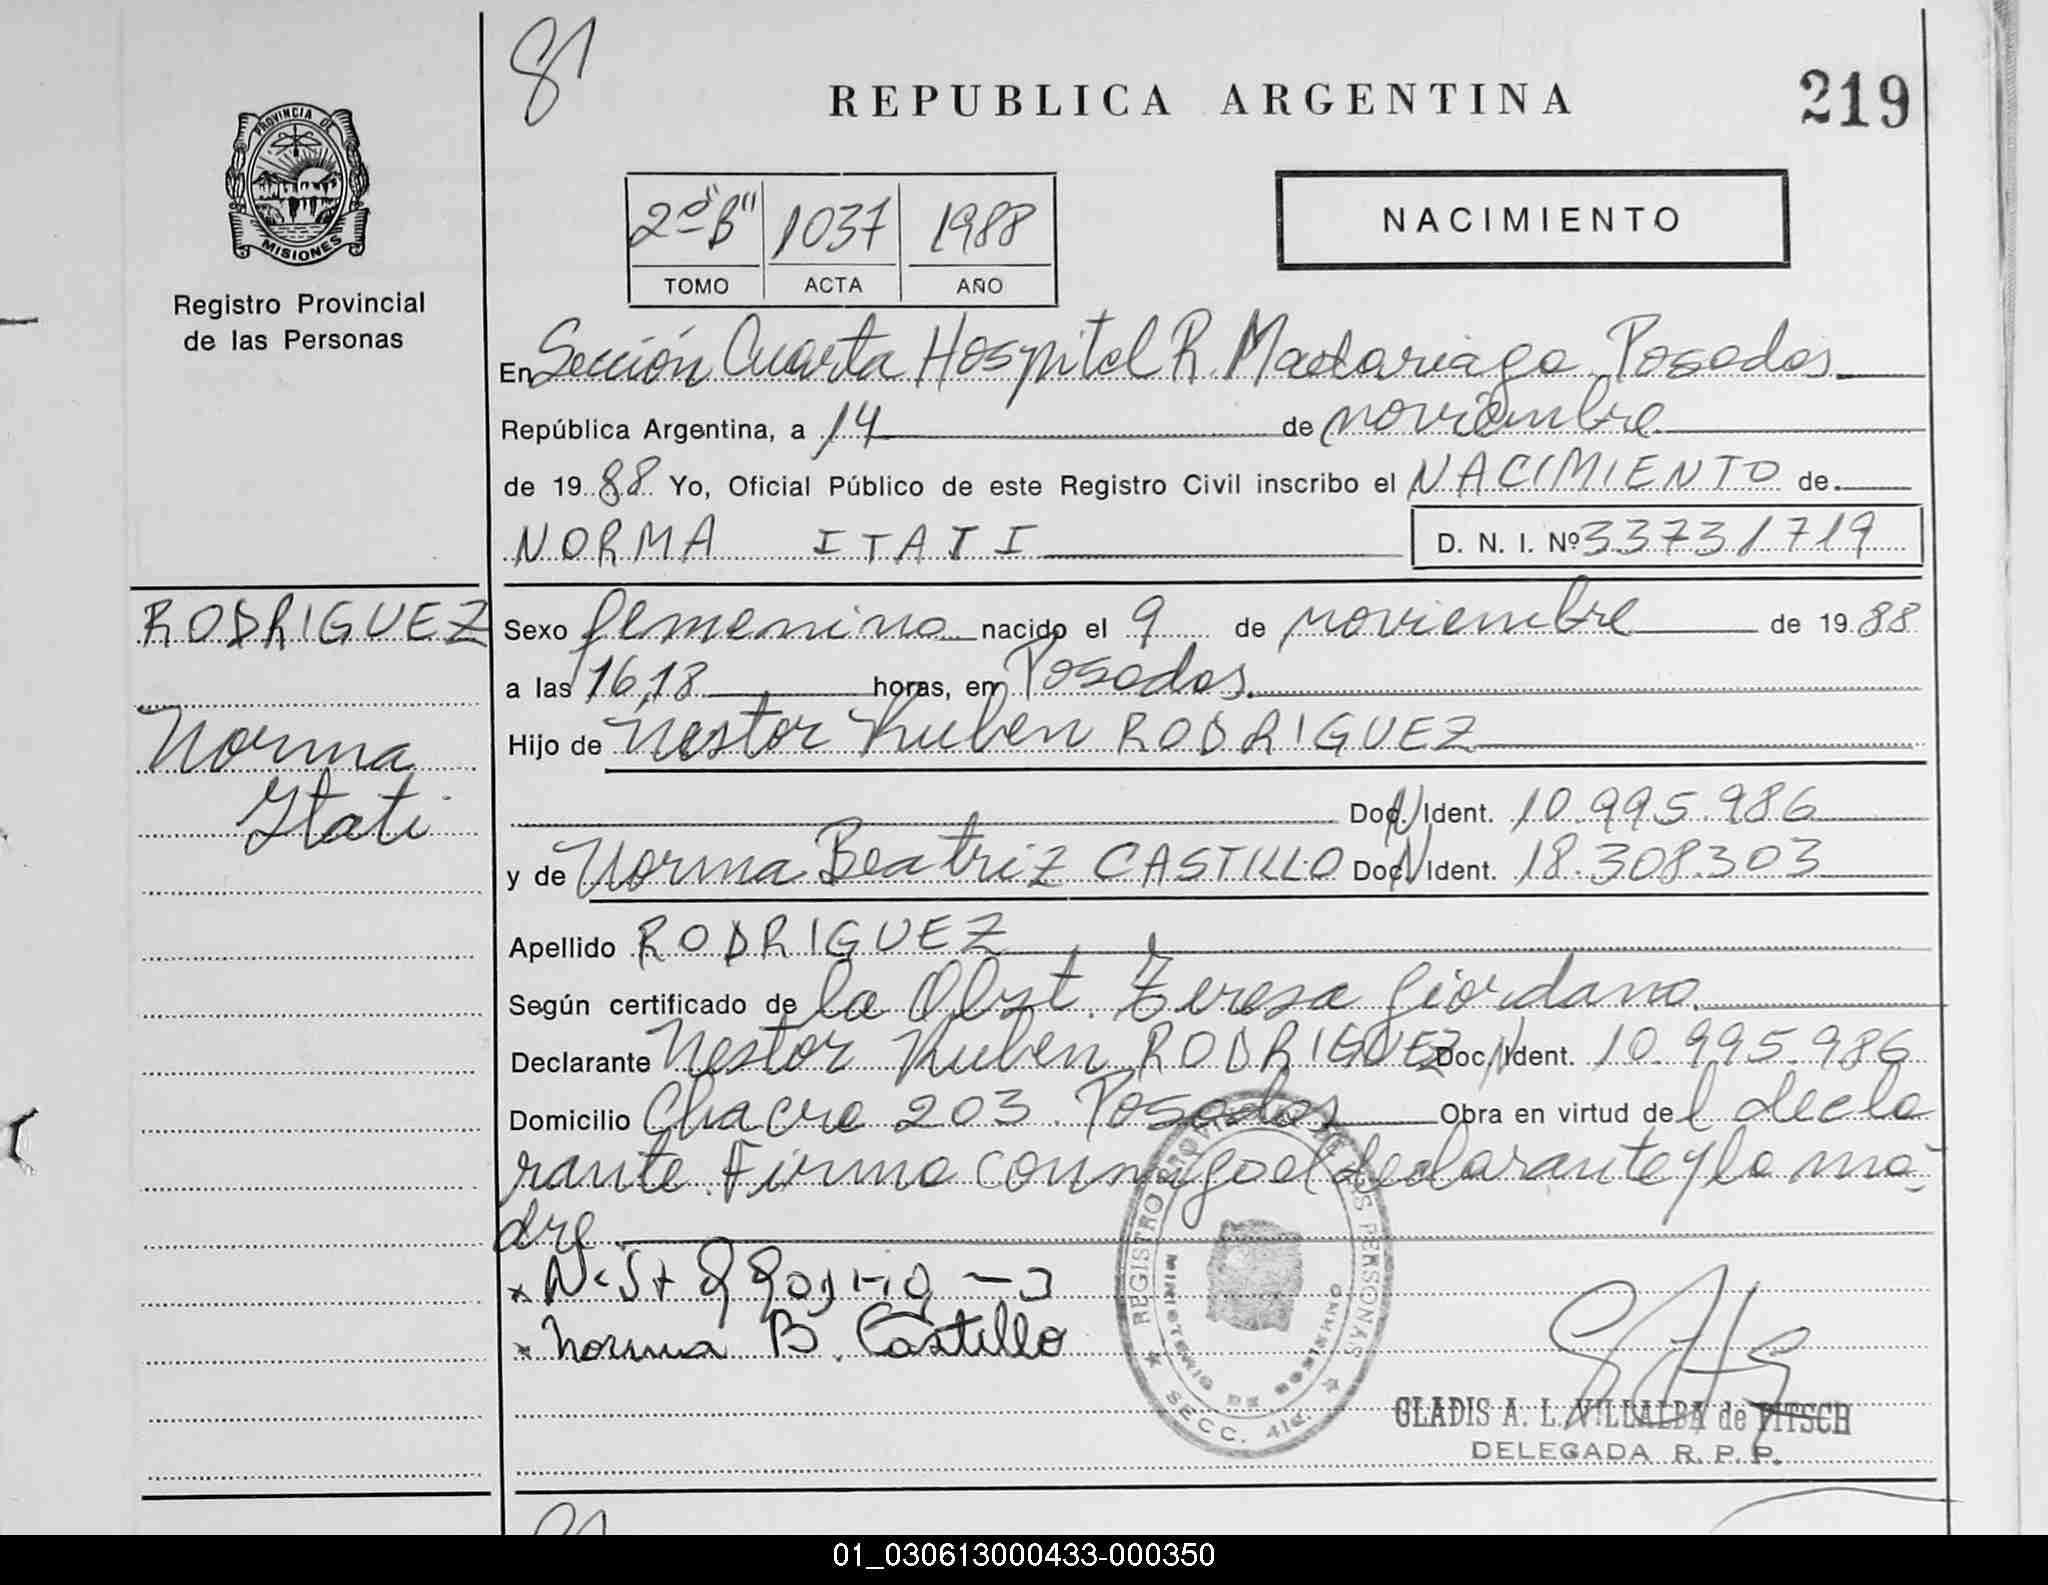 81
REPUBLICA ARGENTINA
219
PROVINCIA DE
MISIONES
Registro Provincial
de las Personas
NACIMIENTO
2º "B" 1037 1988
TOMO ACTA AÑO
En Sección Cuarta Hospital R. Madariaga Posadas
República Argentina, a 14 de noviembre
de 19 88 Yo, Oficial Público de este Registro Civil inscribo el NACIMIENTO de
NORMA ITATI D. N. I. Nº 33731719
RODRIGUEZ
Norma
Itati
Sexo femenino nacido el 9 de noviembre de 19 88
a las 16,18 horas, en Posadas.
Hijo de Nestor Ruben RODRIGUEZ
Doc. N Ident. 10.995.986
y de Norma Beatriz CASTILLO Doc. N Ident. 18.308.303
Apellido RODRIGUEZ
Según certificado de la Obst. Teresa Giordano.
Declarante Nestor Ruben RODRIGUEZ Doc. N Ident. 10.995.986
Domicilio Chacra 203. Posadas Obra en virtud de l decla
rante. Firma conmigo el declarante y la ma-
dre.
x
x Norma B. Castillo
REGISTRO PROVINCIAL DE LAS PERSONAS
MINISTERIO DE GOBIERNO
SECC. 4ta.
GLADIS A. L. VILLALBA de PITSCH
DELEGADA R. P. P.
01_030613000433-000350